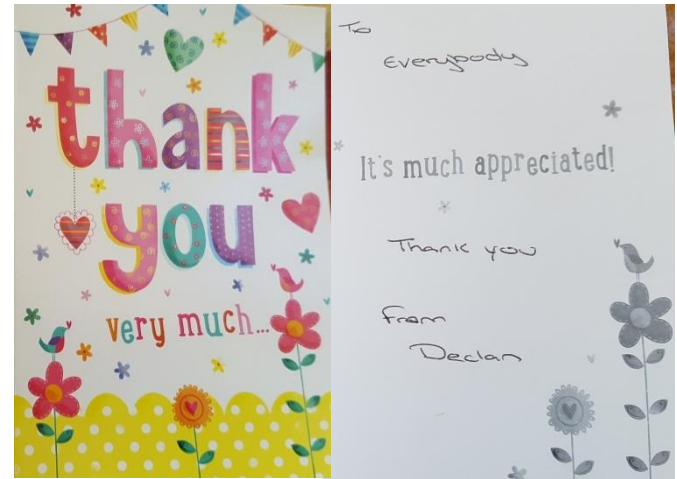 thank
you
very much...
To
Everybody
It's much appreciated!
Thank you
From
Declan